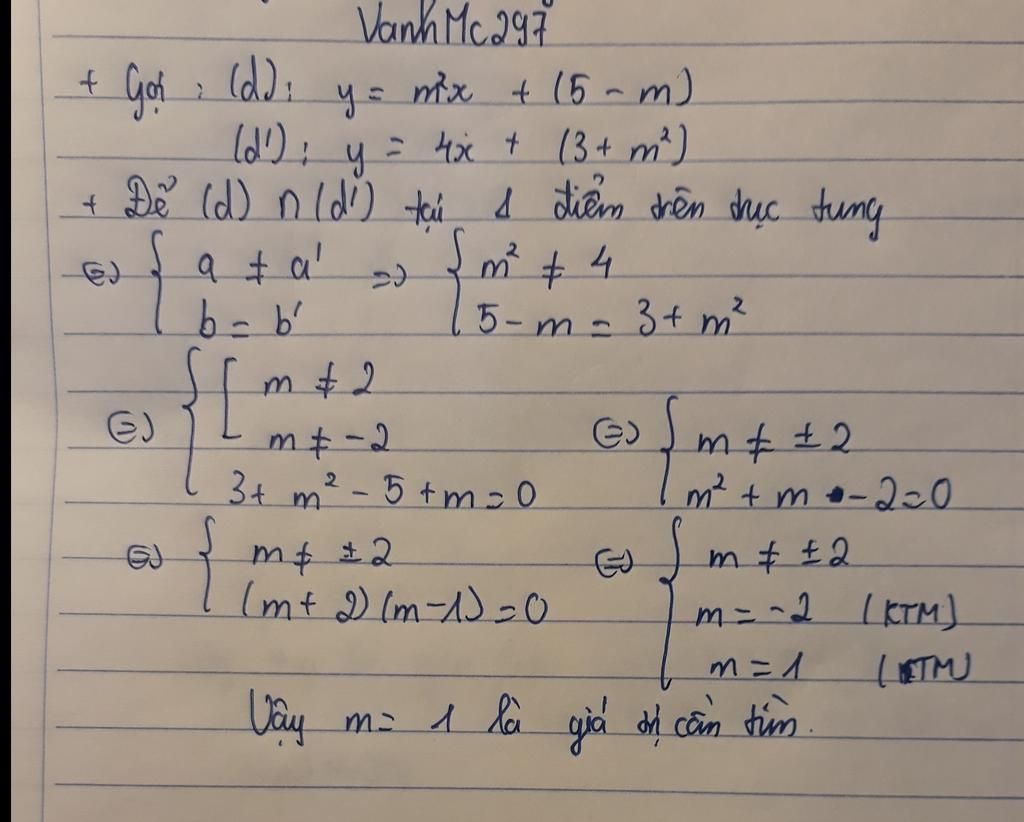 VanhMc297
+ Gọi : (d): y = m²x + (5 - m)
(d'): y = 4x + (3 + m²)
+ Để (d) ∩ (d') tại 1 điểm trên trục tung
⇔ { a ≠ a' ⇒ { m² ≠ 4
b = b' 5 - m = 3 + m²
⇔ { [ m ≠ 2
m ≠ -2 ⇔ { m ≠ ±2
3 + m² - 5 + m = 0 m² + m - 2 = 0
⇔ { m ≠ ±2 ⇔ { m ≠ ±2
(m + 2)(m - 1) = 0 m = -2 (KTM)
m = 1 (TM)
Vậy m = 1 là giá trị cần tìm.